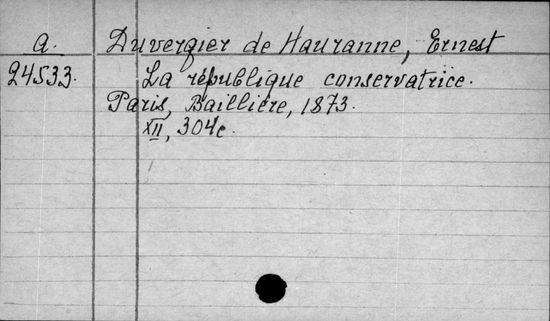 a. Duvergier de Hauranne, Ernest
24533. La république conservatrice.
Paris, Baillière, 1873.
XII, 304c.